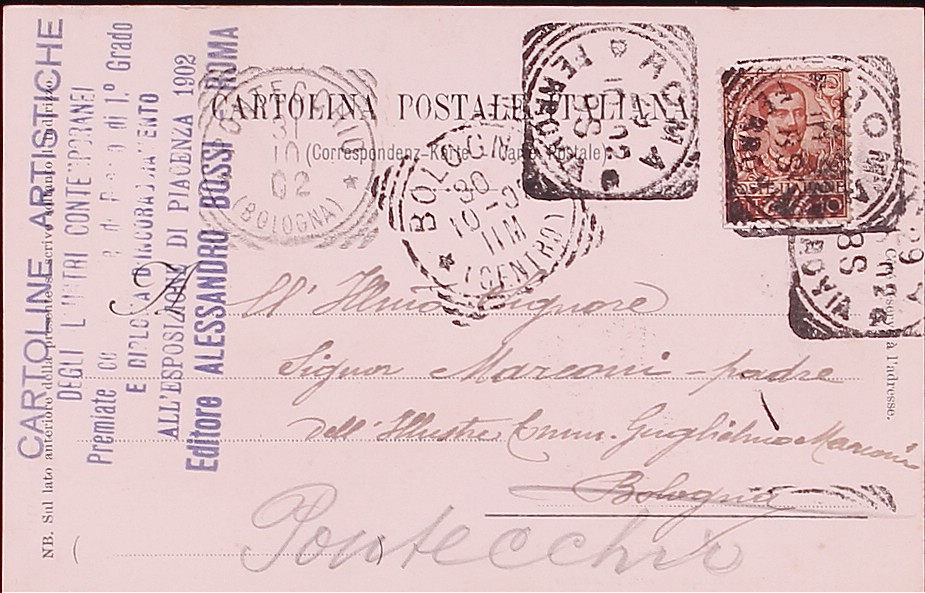 CARTOLINE ARTISTICHE
DEGLI ILLUSTRI CONTEMPORANEI
Premiate con di 1.º Grado
E DIPLOMA D'INCORAGGIAMENTO
ALL'ESPOSIZIONE DI PIACENZA 1902
Editore ALESSANDRO BOSSI ROMA
NB. Sul lato anteriore della presente si scrive soltanto l'indirizzo.
CARTOLINA POSTALE ITALIANA
(Correspondenz-Karte - Carte Postale)
31
10
02
(BOLOGNA)
BOLOGNA
30
10-02
11M
(CENTRO)
ROMA
FERROVIA
ROMA
POSTE ITALIANE
10
All' Illmo Signore
Signor Marconi - padre
dell'Illustre Comm. Guglielmo Marconi
Bologna
Pontecchio
à l'adresse.